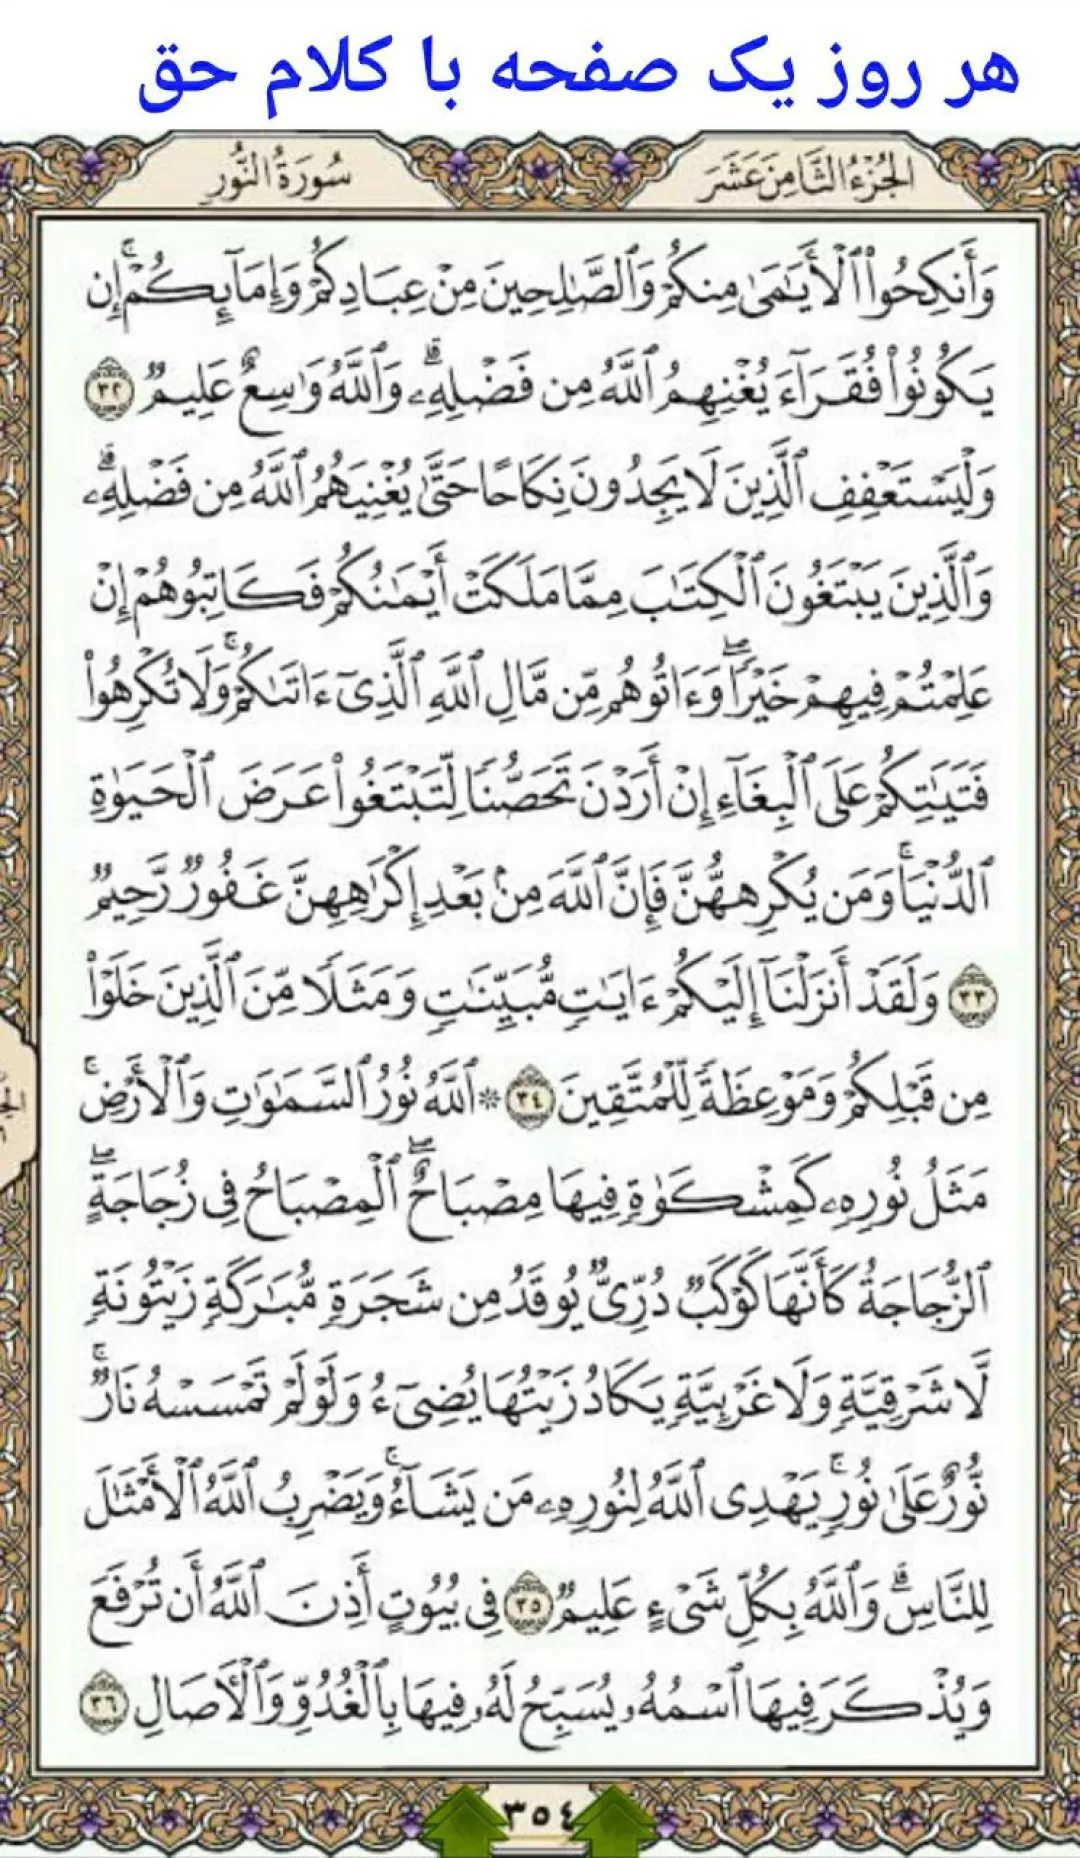 هر روز یک صفحه با کلام حق
الجُزْءُ الثَّامِنَ عَشَرَ
سُورَةُ النُّورِ
وَأَنكِحُوا۟ ٱلْأَيَـٰمَىٰ مِنكُمْ وَٱلصَّـٰلِحِينَ مِنْ عِبَادِكُمْ وَإِمَآئِكُمْ ۚ إِن
يَكُونُوا۟ فُقَرَآءَ يُغْنِهِمُ ٱللَّهُ مِن فَضْلِهِۦ ۗ وَٱللَّهُ وَٰسِعٌ عَلِيمٌ ٣٢
وَلْيَسْتَعْفِفِ ٱلَّذِينَ لَا يَجِدُونَ نِكَاحًا حَتَّىٰ يُغْنِيَهُمُ ٱللَّهُ مِن فَضْلِهِۦ ۗ
وَٱلَّذِينَ يَبْتَغُونَ ٱلْكِتَـٰبَ مِمَّا مَلَكَتْ أَيْمَـٰنُكُمْ فَكَاتِبُوهُمْ إِنْ
عَلِمْتُمْ فِيهِمْ خَيْرًا ۖ وَءَاتُوهُم مِّن مَّالِ ٱللَّهِ ٱلَّذِىٓ ءَاتَىٰكُمْ ۚ وَلَا تُكْرِهُوا۟
فَتَيَـٰتِكُمْ عَلَى ٱلْبِغَآءِ إِنْ أَرَدْنَ تَحَصُّنًا لِّتَبْتَغُوا۟ عَرَضَ ٱلْحَيَوٰةِ
ٱلدُّنْيَا ۚ وَمَن يُكْرِههُّنَّ فَإِنَّ ٱللَّهَ مِنۢ بَعْدِ إِكْرَٰهِهِنَّ غَفُورٌ رَّحِيمٌ
٣٣ وَلَقَدْ أَنزَلْنَآ إِلَيْكُمْ ءَايَـٰتٍ مُّبَيِّنَـٰتٍ وَمَثَلًا مِّنَ ٱلَّذِينَ خَلَوْا۟
مِن قَبْلِكُمْ وَمَوْعِظَةً لِّلْمُتَّقِينَ ٣٤ * ٱللَّهُ نُورُ ٱلسَّمَـٰوَٰتِ وَٱلْأَرْضِ ۚ
مَثَلُ نُورِهِۦ كَمِشْكَوٰةٍ فِيهَا مِصْبَاحٌ ۖ ٱلْمِصْبَاحُ فِى زُجَاجَةٍ ۖ
ٱلزُّجَاجَةُ كَأَنَّهَا كَوْكَبٌ دُرِّىٌّ يُوقَدُ مِن شَجَرَةٍ مُّبَـٰرَكَةٍ زَيْتُونَةٍ
لَّا شَرْقِيَّةٍ وَلَا غَرْبِيَّةٍ يَكَادُ زَيْتُهَا يُضِىٓءُ وَلَوْ لَمْ تَمْسَسْهُ نَارٌ ۚ
نُّورٌ عَلَىٰ نُورٍ ۗ يَهْدِى ٱللَّهُ لِنُورِهِۦ مَن يَشَآءُ ۚ وَيَضْرِبُ ٱللَّهُ ٱلْأَمْثَـٰلَ
لِلنَّاسِ ۗ وَٱللَّهُ بِكُلِّ شَىْءٍ عَلِيمٌ ٣٥ فِى بُيُوتٍ أَذِنَ ٱللَّهُ أَن تُرْفَعَ
وَيُذْكَرَ فِيهَا ٱسْمُهُۥ يُسَبِّحُ لَهُۥ فِيهَا بِٱلْغُدُوِّ وَٱلْـَٔاصَالِ ٣٦
٣٥٤